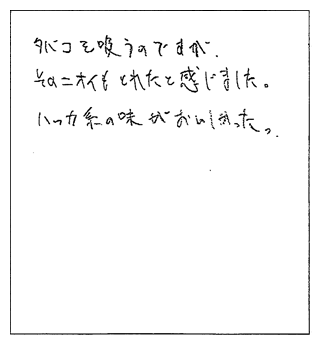 タバコを吸うのですが、
そのニオイもとれたと感じました。
ハッカ系の味がおいしかった。